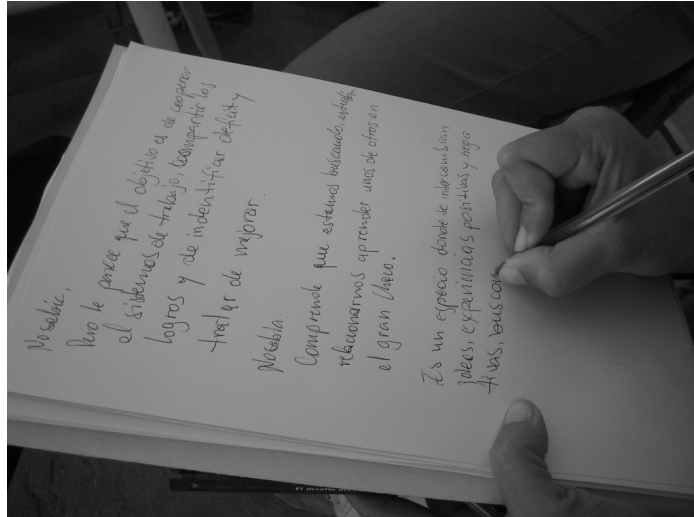 No sabía.
Pero le parece que el objetivo es de cooperar
el sistemas de trabajo, compartir los
logros y de indentificar deficit y
tratar de mejorar.
No sabía.
Comprende que estamos buscando,
relacionarnos aprender unos de otros en
el gran Chaco.
Es un espacio donde se intercambian
ideas, experiencias positivas y nega
tivas, buscan
El desafío